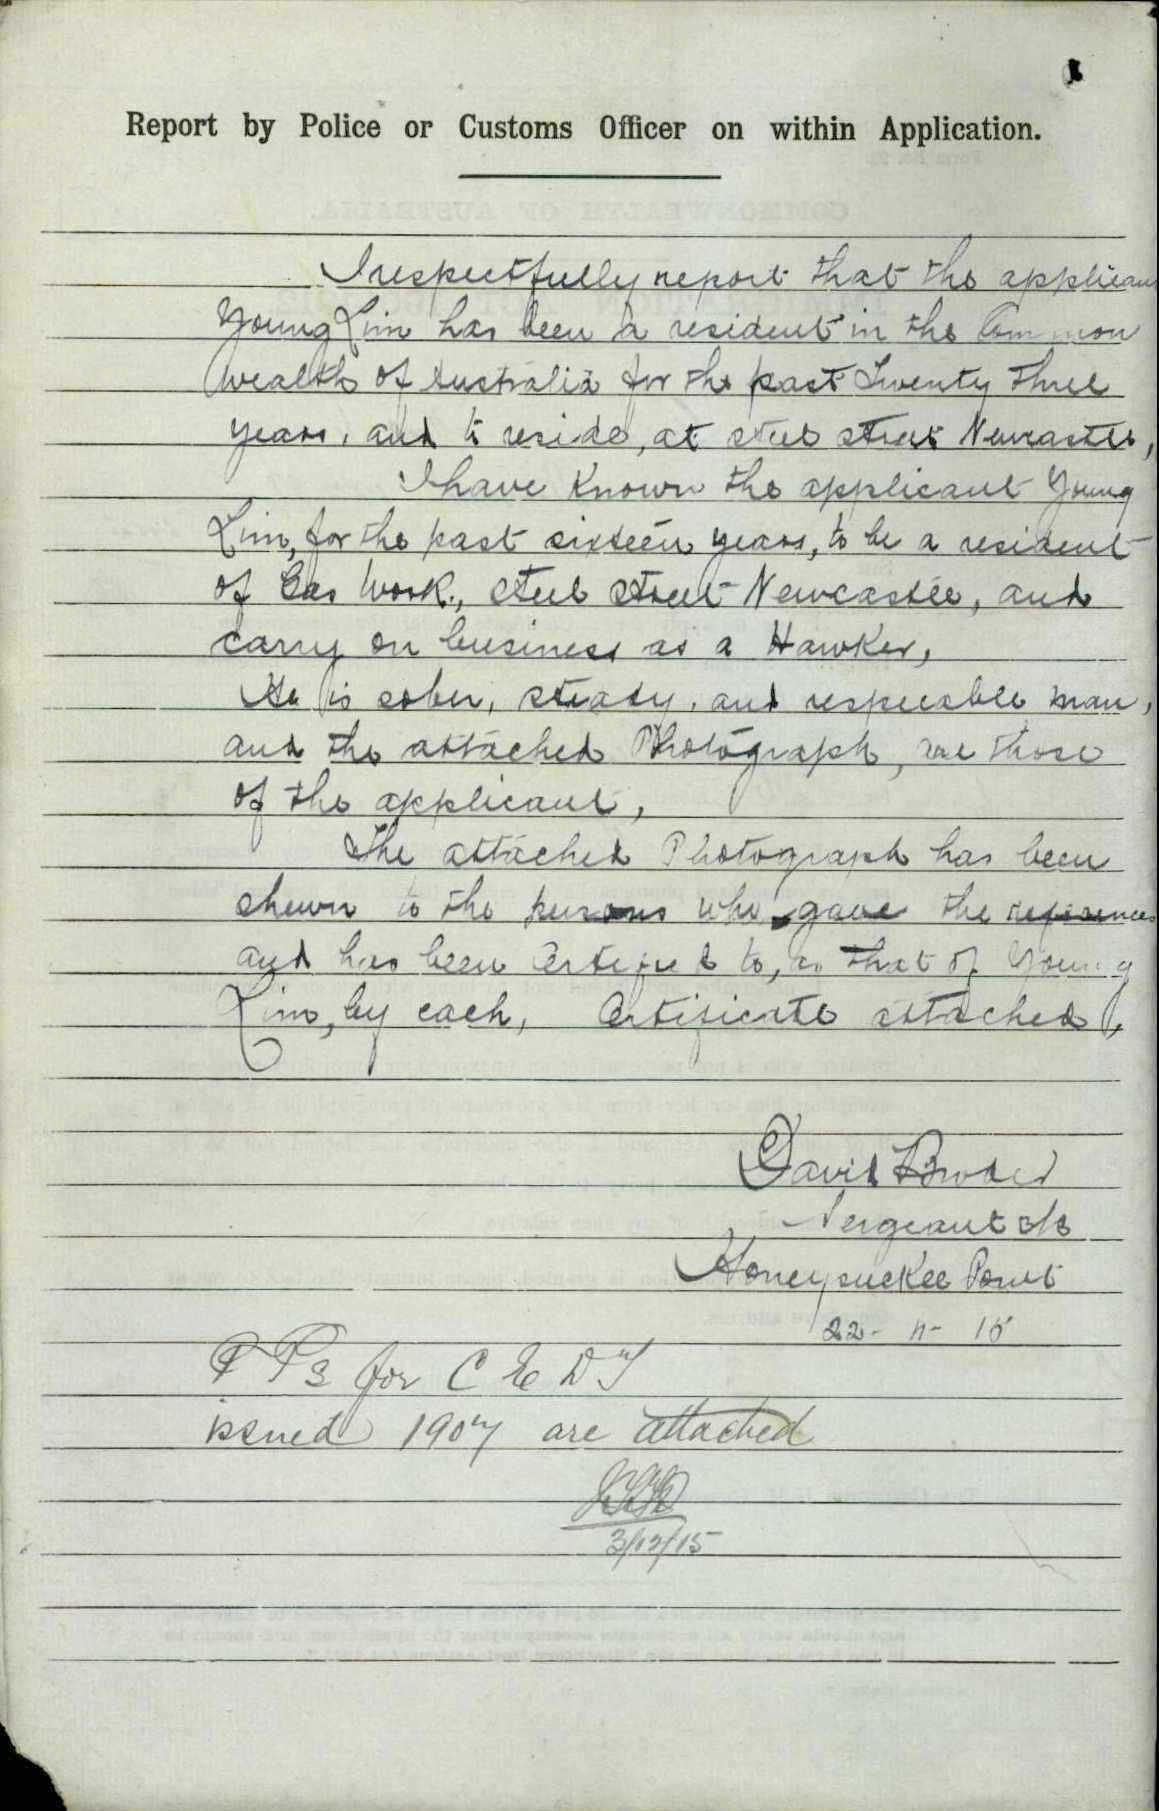 Report by Police or Customs Officer on within Application.
I respectfully report that the applicant
Young Lim has been a resident in the Common
wealth of Australia for the past Twenty three
years, and to reside, at steel street Newcastle,
I have Known the applicant Young
Lim, for the past sixteen years, to be a resident
of Gas Work., steel street Newcastle, and
carry on business as a Hawker,
He is sober, steady, and respecable man,
and the attached Photograph, are those
of the applicant,
The attached Photograph has been
shewn to the persons who gave the references
and has been Certified to, as that of Young
Lim, by each, Certificate attached,
David
Sergeant
Honeysuckle Point
22- 11- 15
P Ps for C E D T
issued 1907 are attached
3/12/15